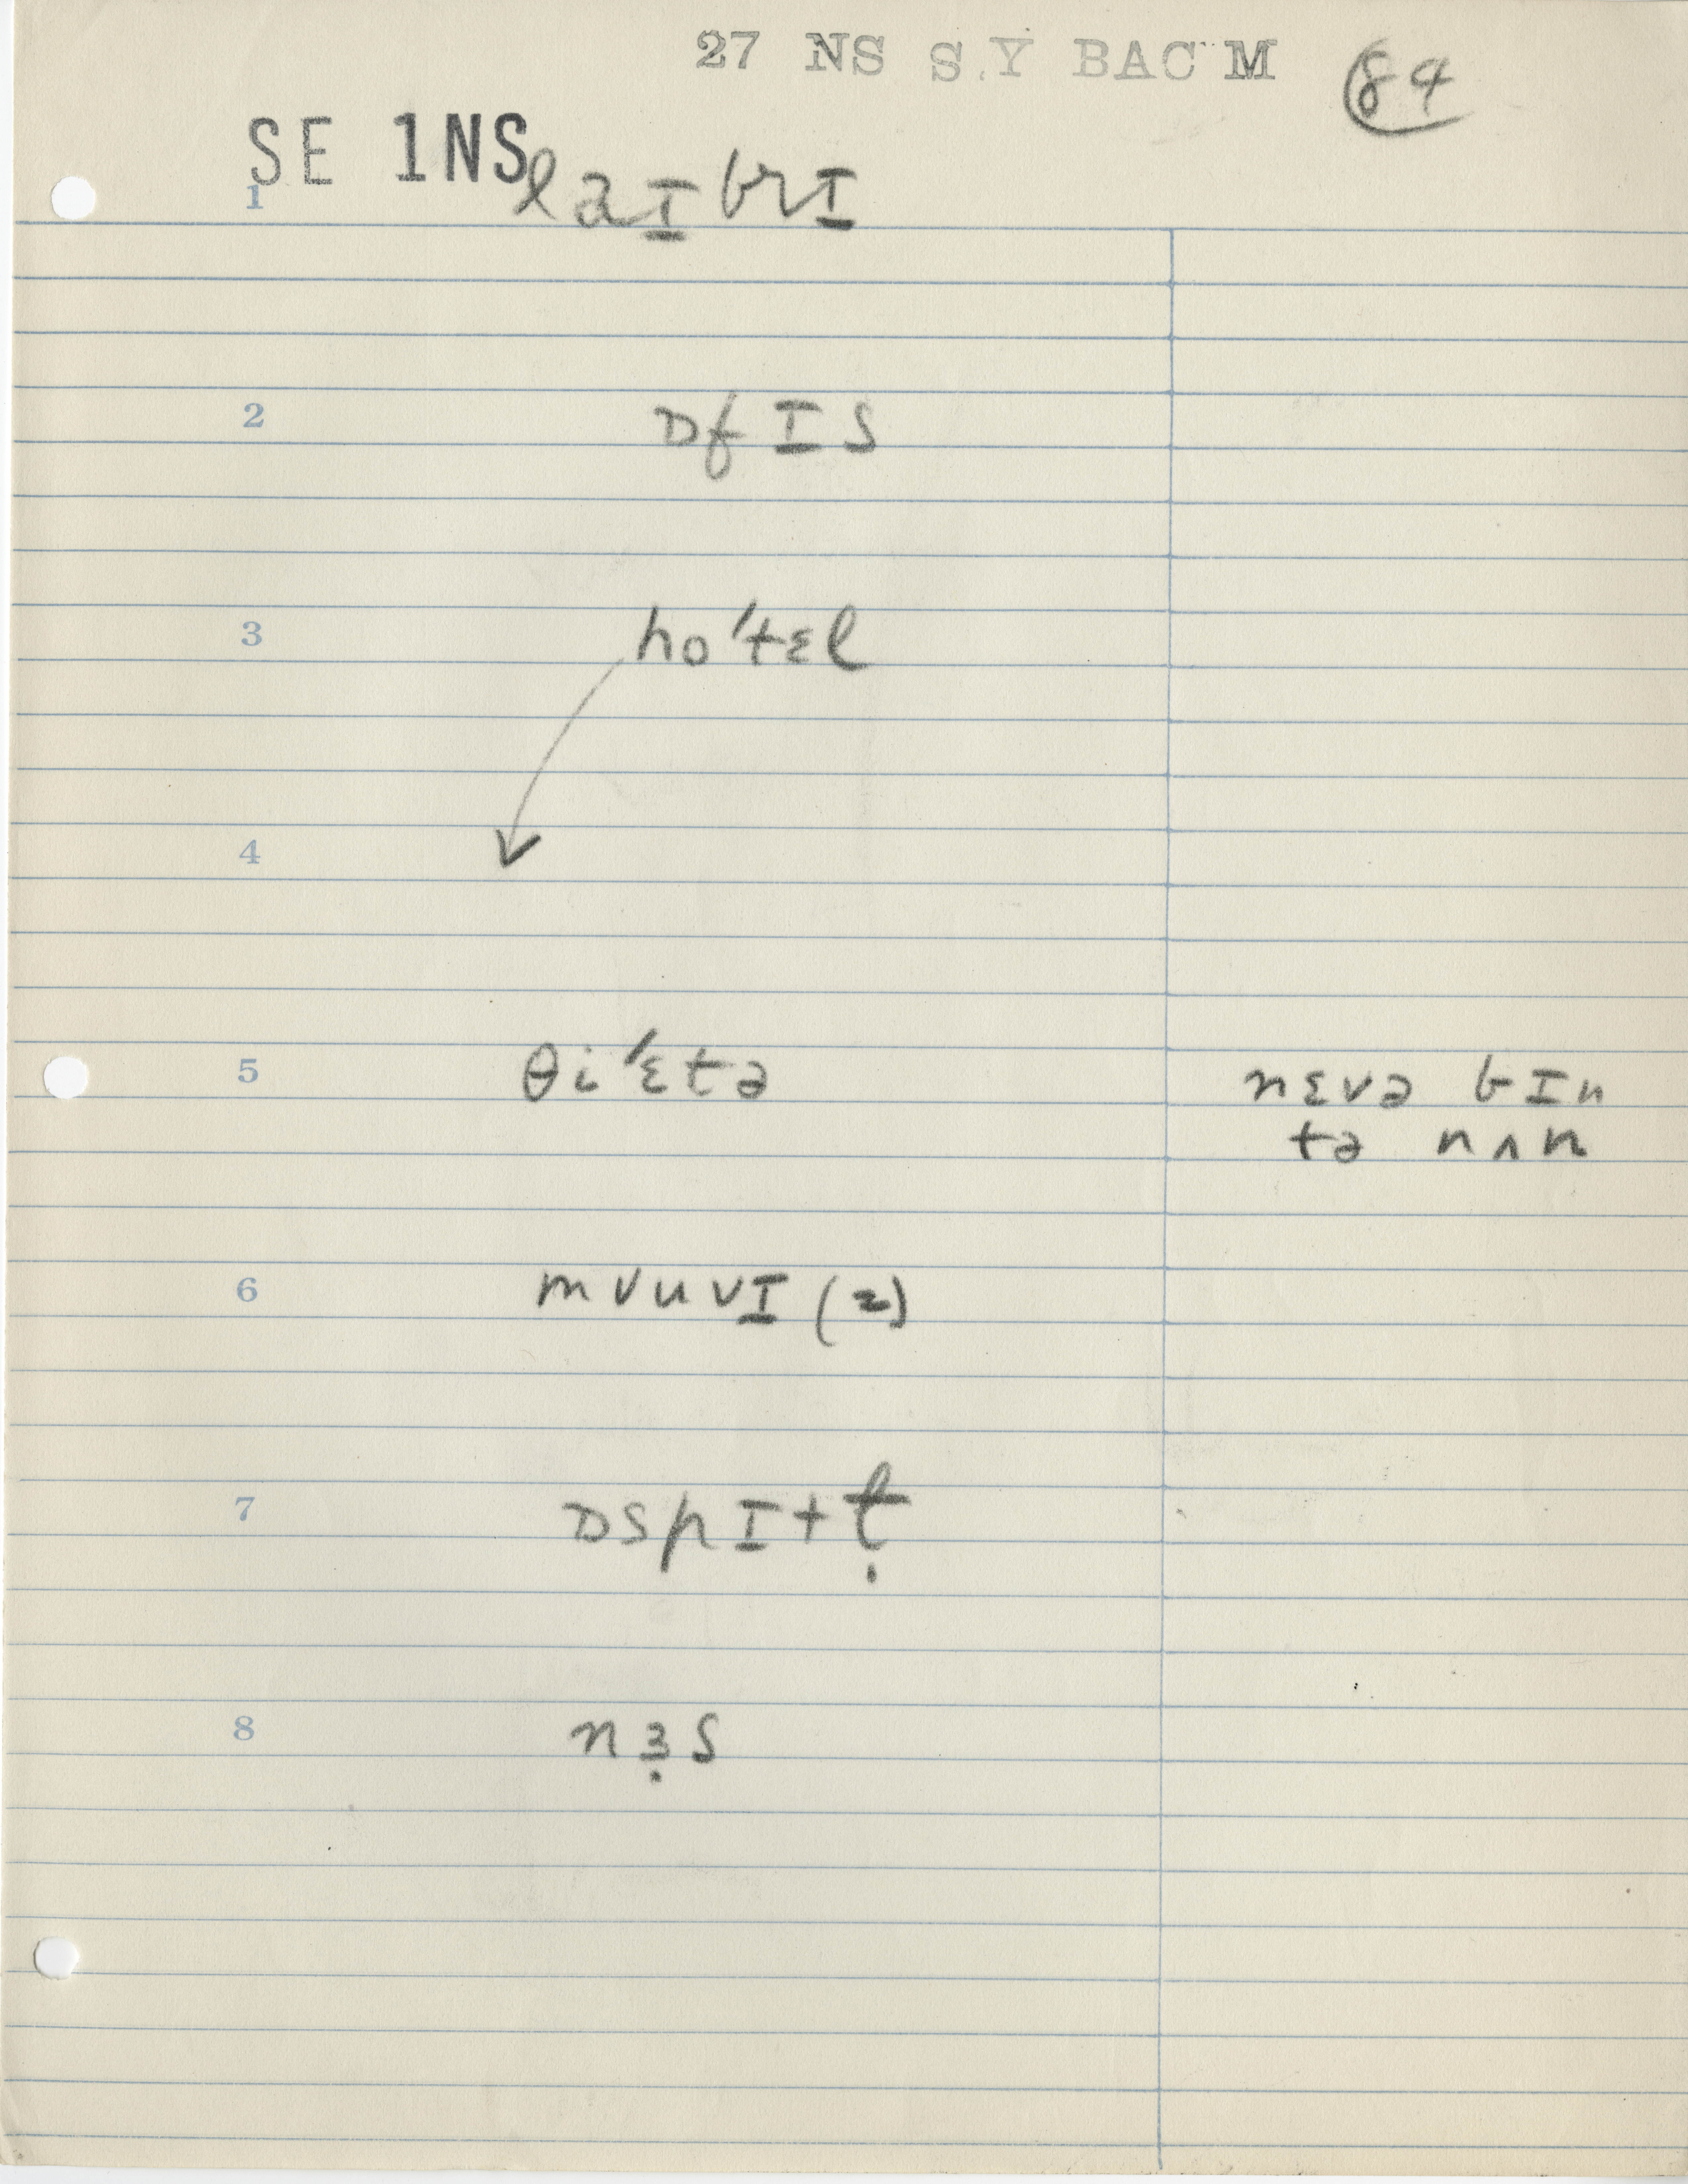 27 NS S.Y BAC M 84
SE 1NS
1 laɪbrɪ
2 ɒfɪs
3 ho'tɛl
4
5 θi'ɛtə nɛvə bɪn
tə nʌn
6 mʊuvɪ (z)
7 ɒspɪtɫ̩
8 nɜ̣s